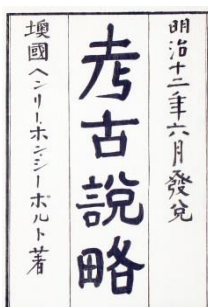 明治十二年六月發兌
考古說略
墺國ヘンリーホンシーボルト著